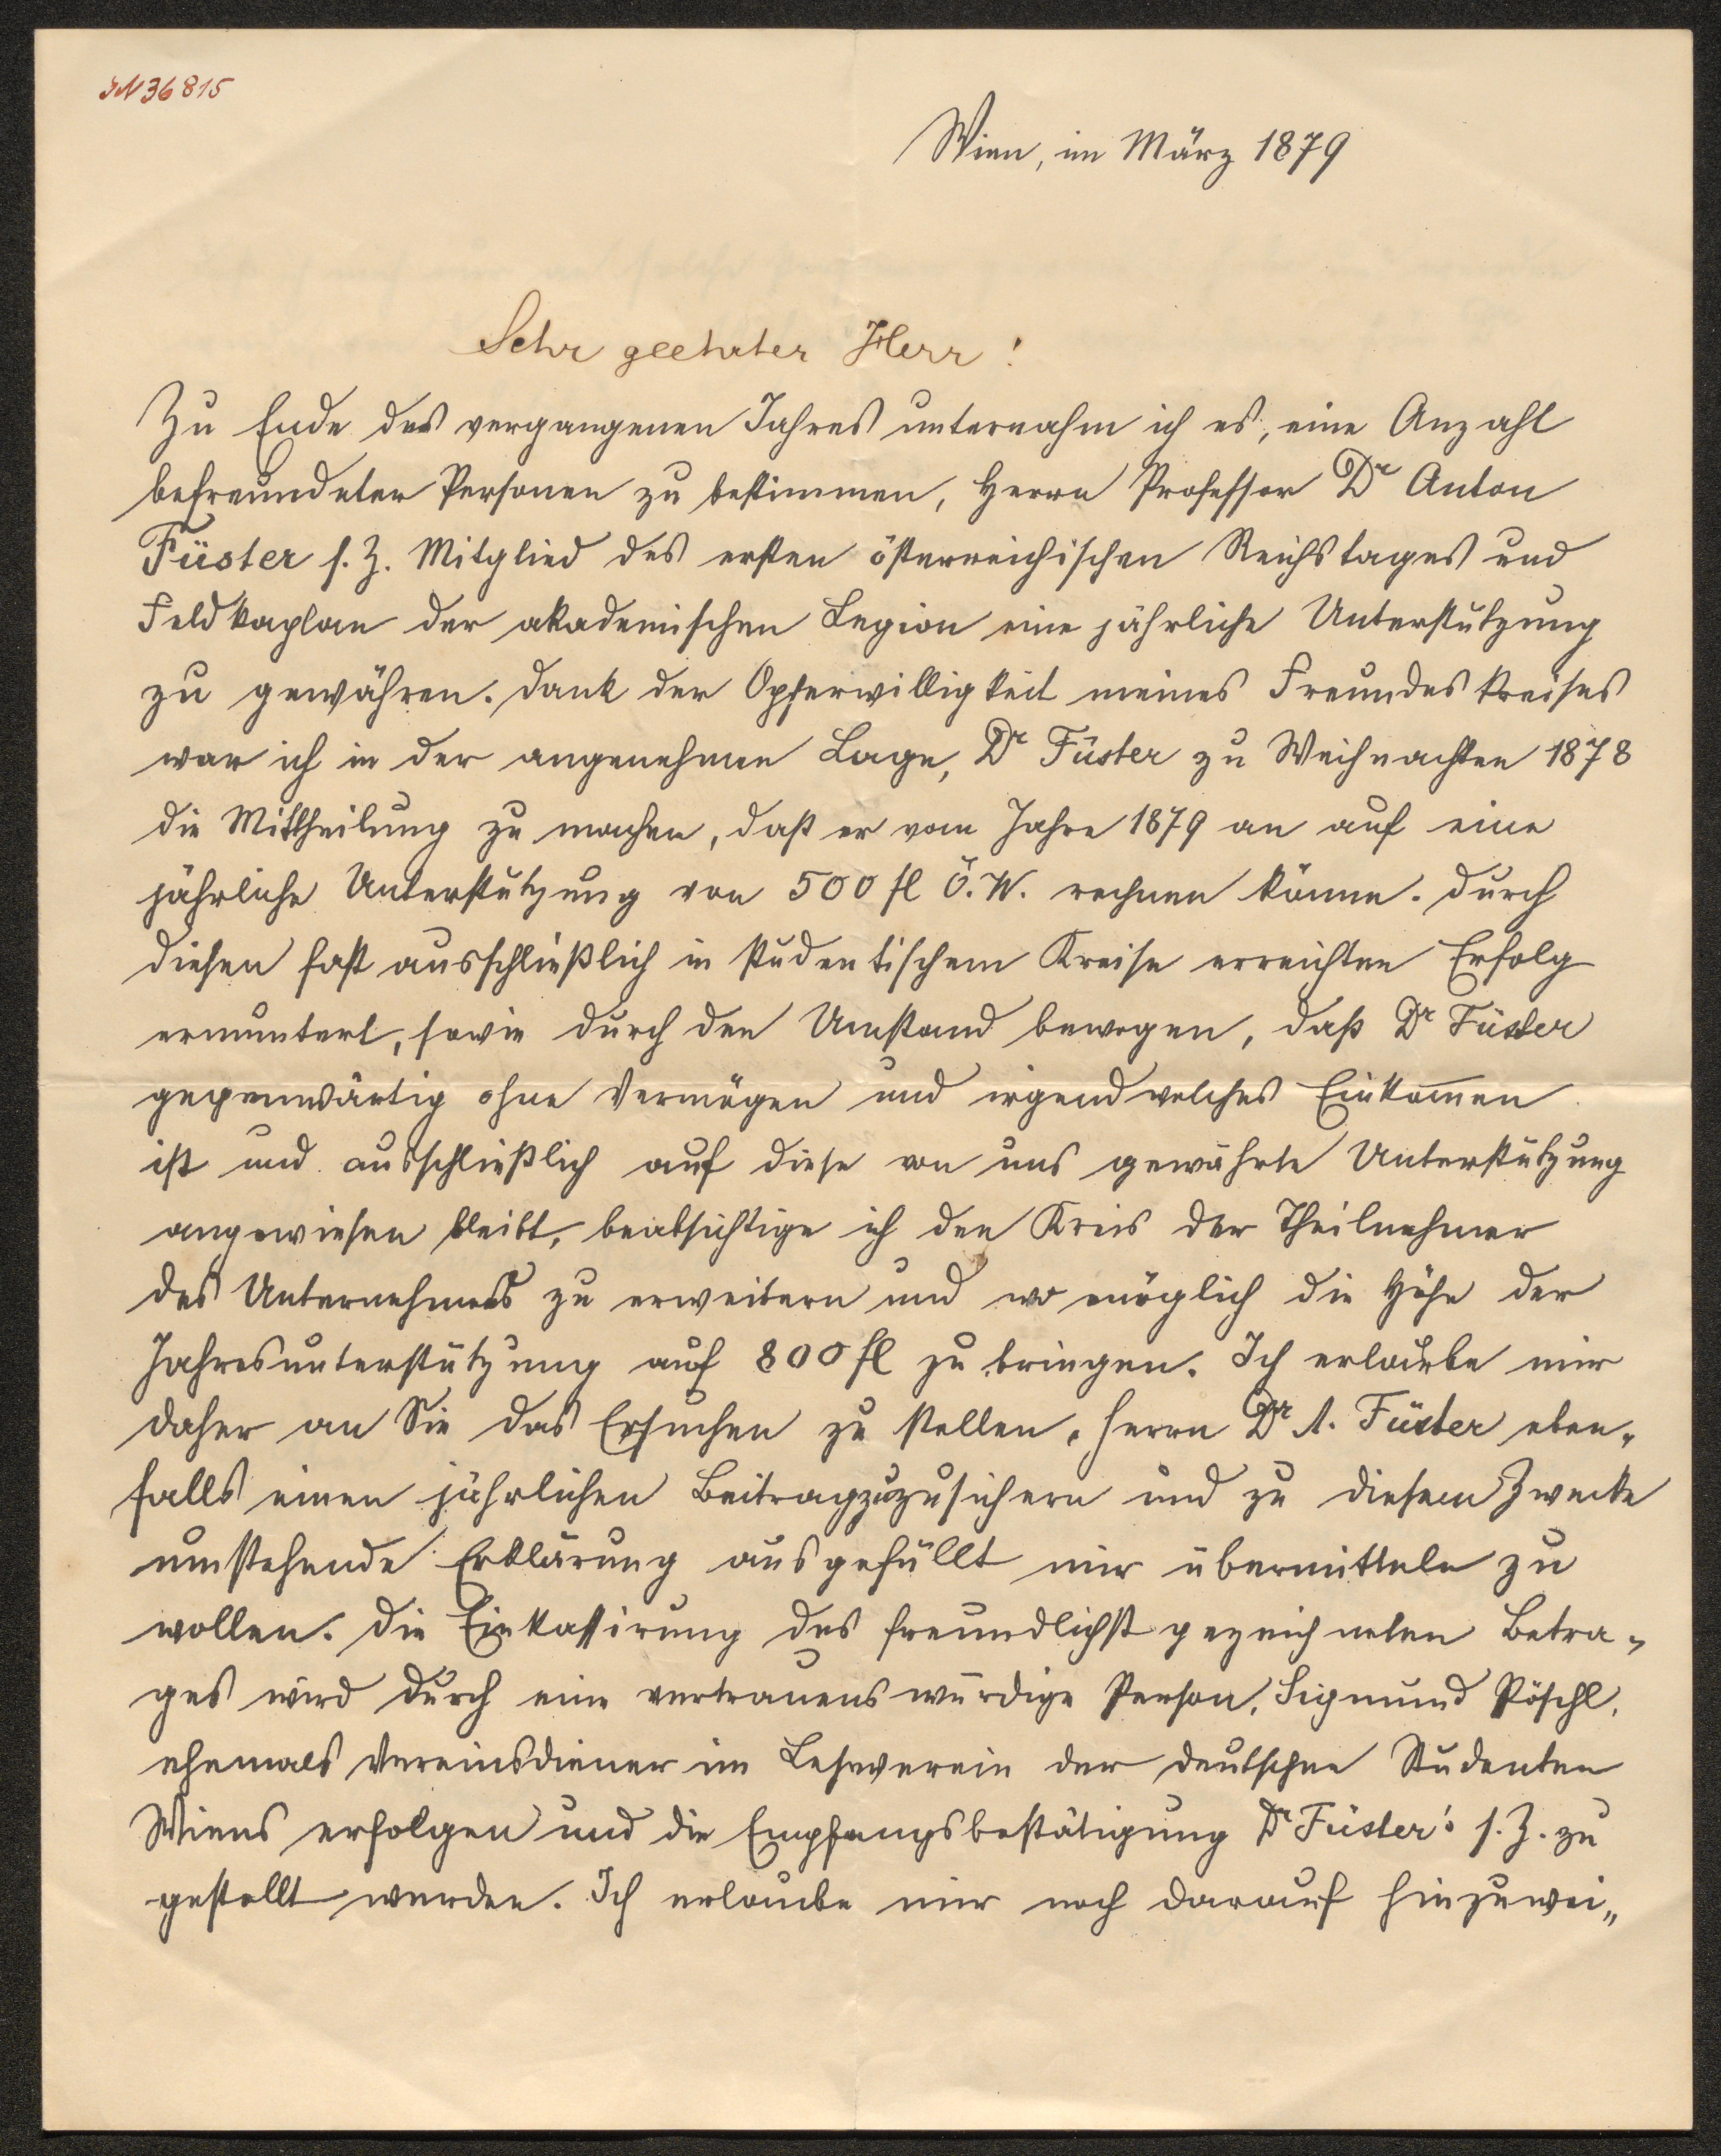 IN 36815
Wien, im März 1879
Sehr geehrter Herr!
Zu Ende des vergangenen Jahres unternahm ich es, eine Anzahl
befreundeter Personen zu bestimmen, Herrn Professor Dr Anton
Füster s. Z. Mitglied des ersten österreichischen Reichstages und
Feldkaplan der akademischen Legion eine jährliche Unterstützung
zu gewähren. Dank der Opferwilligkeit meines Freundeskreises
war ich in der angenehmen Lage, Dr Füster zu Weihnachten 1878
die Mittheilung zu machen, daß er vom Jahre 1879 an auf eine
jährliche Unterstützung von 500 fl Ö. W. rechnen könne. Durch
diesen fast ausschließlich in studentischem Kreise erreichten Erfolg
ermuntert, sowie durch den Umstand bewogen, daß Dr Füster
gegenwärtig ohne Vermögen und irgendwelches Einkommen
ist und ausschließlich auf diese von uns gewährte Unterstützung
angewiesen bleibt, beabsichtige ich den Kreis der Theilnehmer
des Unternehmens zu erweitern und wo möglich die Höhe der
Jahresunterstützung auf 800 fl zu bringen. Ich erlaube mir
daher an Sie das Ersuchen zu stellen, Herrn Dr A. Füster eben„
falls einen jährlichen Beitrag zuzusichern und zu diesem Zwecke
umstehende Erklärung ausgefüllt mir übermitteln zu
wollen. Die Einkassirung des freundlichst gezeichneten Betra„
ges wird durch eine vertrauenswürdige Person, Sigmund Pöschl,
ehemals Vereinsdiener im Leseverein der deutschen Studenten
Wiens erfolgen und die Empfangsbestätigung Dr Füster's s. Z. zu
gestellt werden. Ich erlaube mir noch darauf hinzuwei„